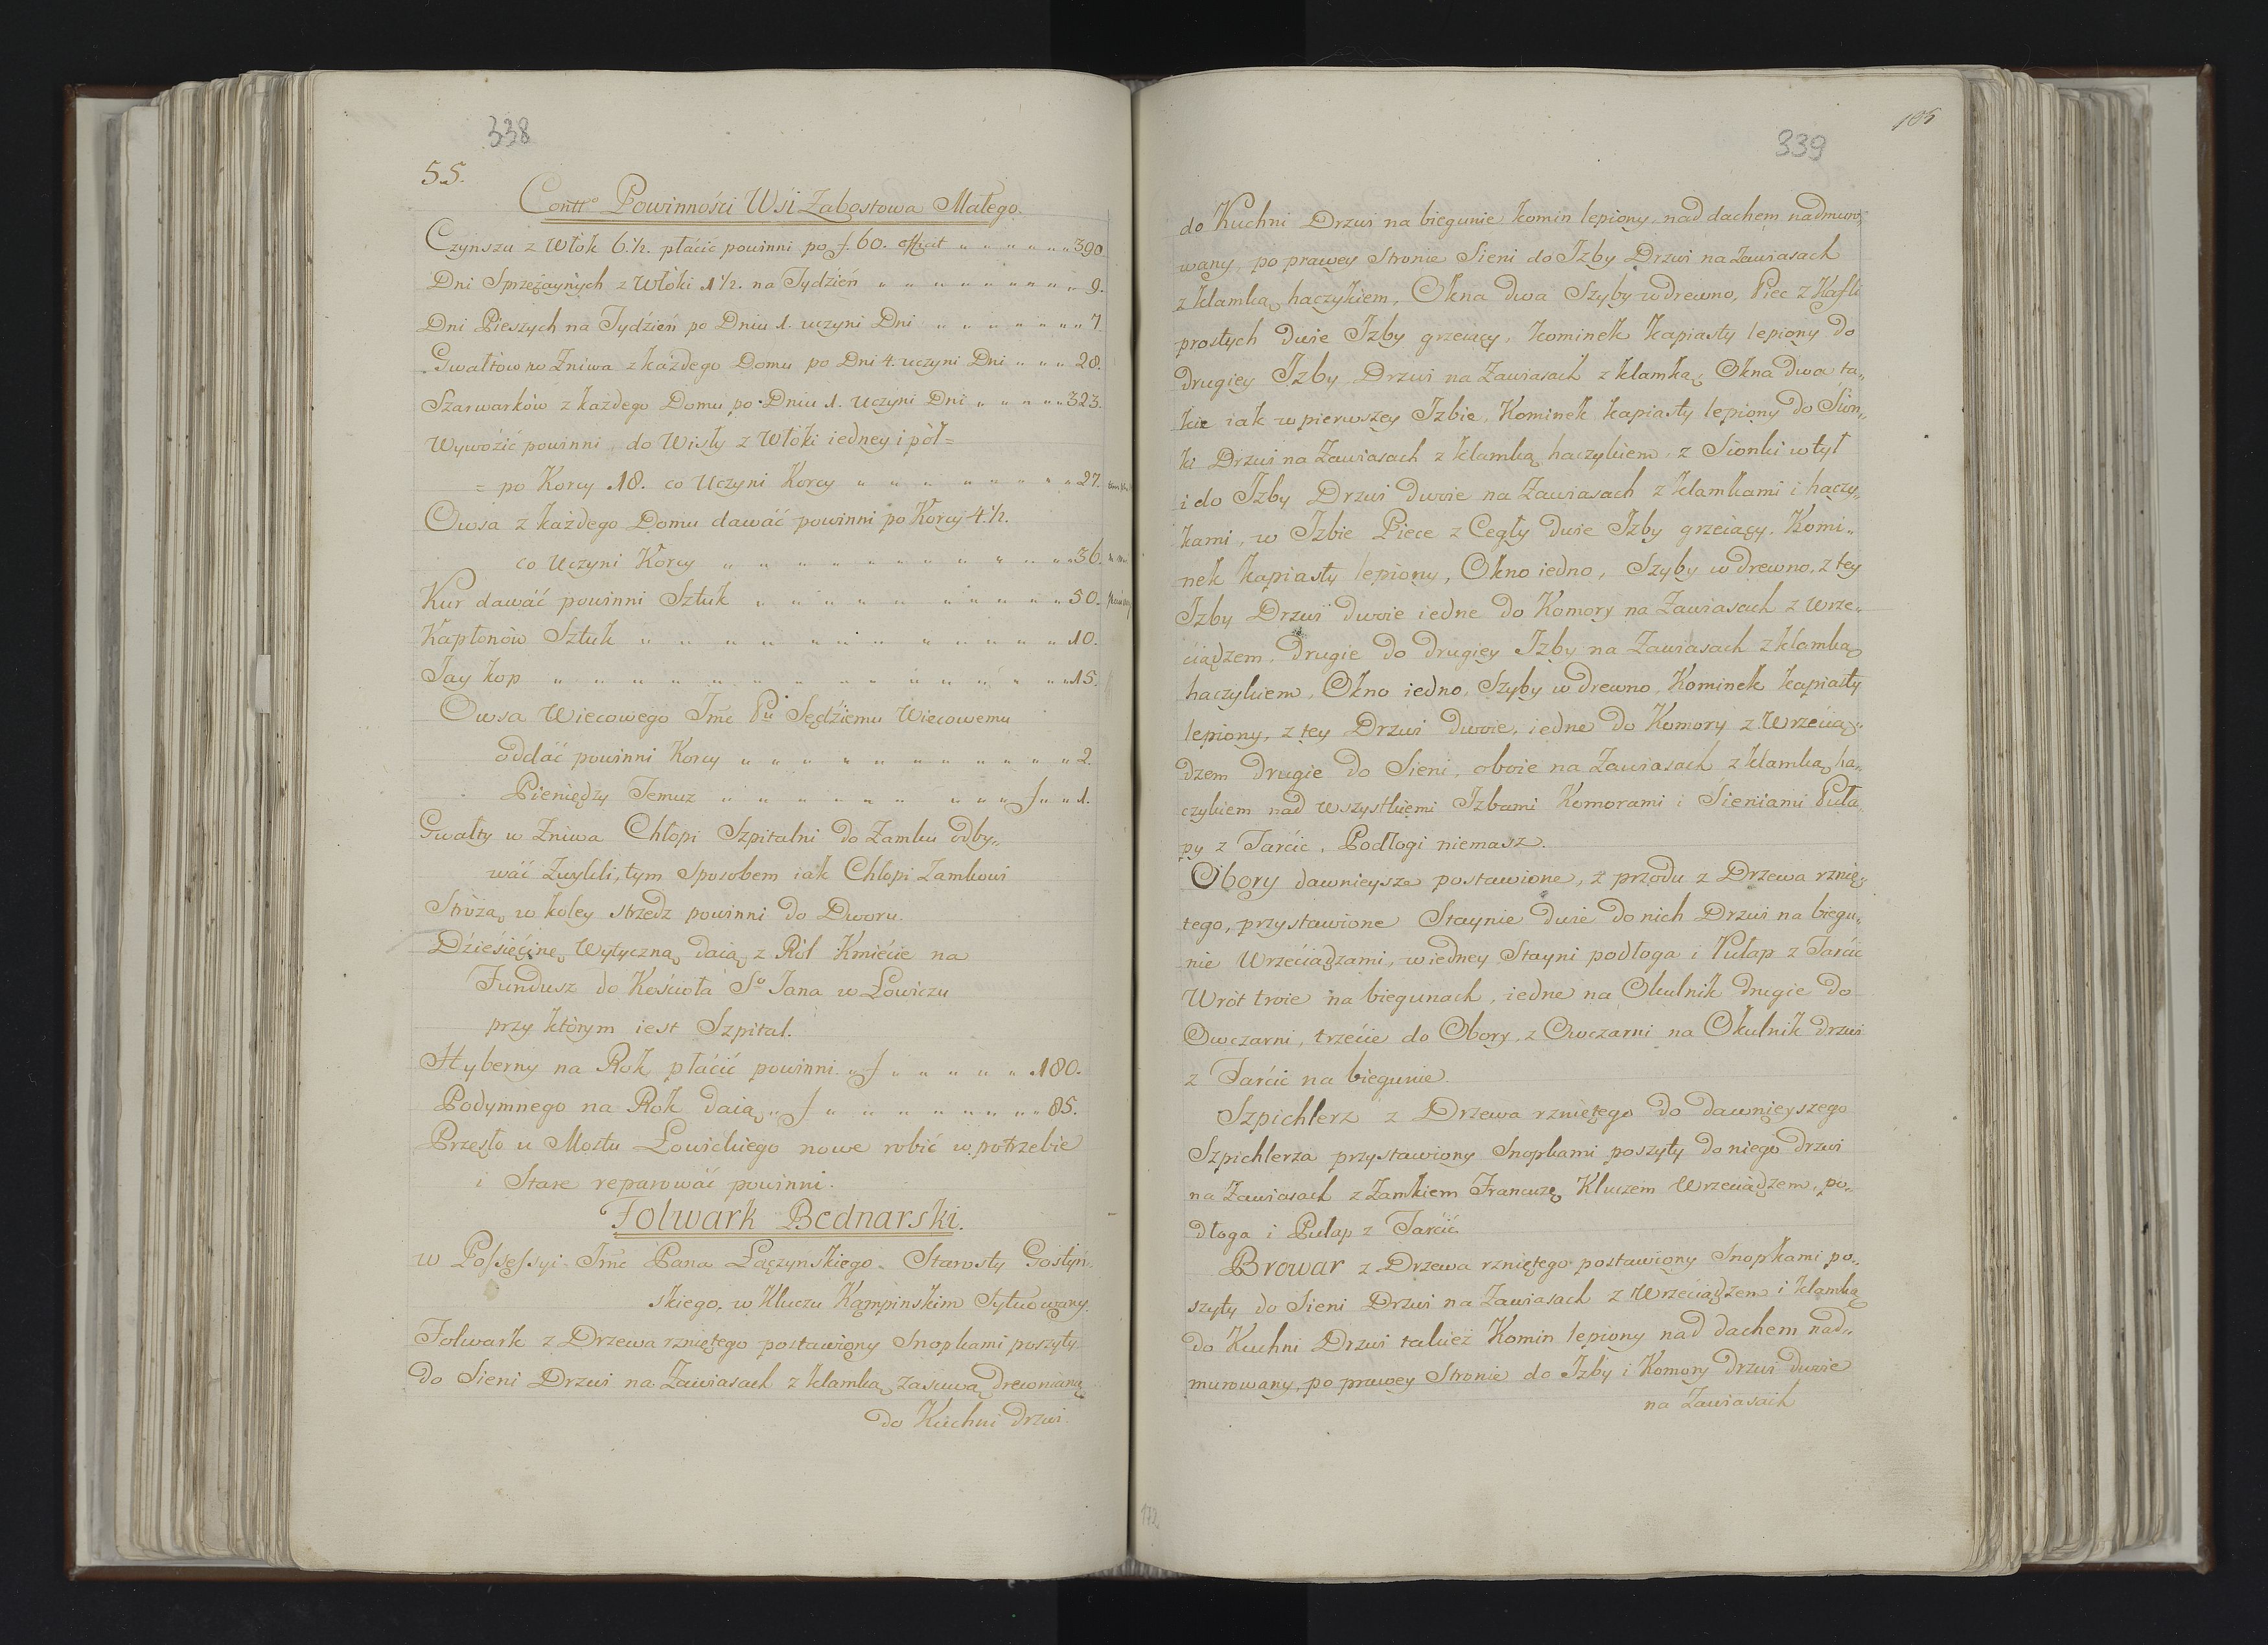 338
55.
Contto Powinności Wsi Zabostowa Małego
Czynszu z Włok 6.½. płacić powinni po f. 60. efficit " " " " " " 390
Dni Sprzężaynych z Włóki 1½. na Tydzień " " " " " " " " " " 9.
Dni Pieszych na Tydzień po Dniu 1. uczyni Dni " " " " " " " 7
Gwałtow w Żniwa z każdego Domu po Dni 4. uczyni Dni " " " 28.
Szarwarków z każdego Domu po Dniu 1. Uczyni Dni " " " " " 323.
Wywozić powinni do Wisły z Włóki iedney i pół=
= po Korcy 18. co Uczyni Korcy " " " " " " " " " 27.
Owsa z każdego Domu dawać powinni po Korcy 4.½.
co Uczyni Korcy " " " " " " " " " " " " 36.
Kur dawać powinni Sztuk " " " " " " " " " " " 50.
Kapłonów Sztuk " " " " " " " " " " " " " " " 10.
Jay kop " " " " " " " " " " " " " " " " " 15.
Owsa Wiecowego Jmć Pu Sędziemu Wiecowemu
oddać powinni Korcy " " " " " " " " " " " " 2.
Pieniędzy Temuz " " " " " " " " " " f " " 1.
Gwałty w Zniwa Chłopi Szpitalni do Zamku odby„
wać Zwykli, tym Sposobem iak Chłopi Zamkowi
Strożą w koley strzedz powinni do Dworu.
Dzieśięćinę Wytyczną daią z Ról Kmiećie na
Fundusz do Kośćioła So Jana w Łowiczu
przy którym iest Szpital.
Hyberny na Rok płaćić powinni " f " " " " " " 180.
Podymnego na Rok daią " f " " " " " " " " " 85.
Przęsło u Mostu Łowickiego nowe robić w potrzebie
i Stare reparować powinni.
Folwark Bednarski.
w Possessyi Jmć Pana Łączynskiego Starosty Gostyń„
skiego, w Kluczu Kąmpinskim Sytuowany.
Folwark z Drzewa rzniętego postawiony Snopkami poszyty.
do Sieni Drzwi na Zawiasach z klamką zasuwą drewnianą
do Kuchni drzwi.
105
339
do Kuchni Drzwi na biegunie komin lepiony, nad dachem nadmuro„
wany, po prawey Stronie Sieni do Izby Drzwi na Zawiasach
z klamką haczykiem, Okna dwa Szyby w drewno, Piec z Kafli
prostych dwie Izby grzeiący, kominek kapiasty lepiony do
drugiey Izby Drzwi na Zawiasach z klamką, Okna dwa ta„
kie iak w pierwszey Izbie, Kominek kapiasty lepiony do Sion„
ki Drzwi na Zawiasach z klamką haczykiem, z Sionki w tył
i do Izby Drzwi dwoie na Zawiasach z klamkami i haczy„
kami, w Izbie Piece z Cegły dwie Izby grzeiący, Komi„
nek kapiasty lepiony, Okno iedno, Szyby w drewno, z tey
Izby Drzwi dwoie iedne do Komory na Zawiasach z wrze„
ciądzem, drugie do drugiey Izby na Zawiasach z klamką
haczykiem, Okno iedno, Szyby w drewno, Kominek kapiasty
lepiony, z tey Drzwi dwoie, iedne do Komory z Wrzecią„
dzem drugie do Sieni, oboie na Zawiasach z klamką ha„
czykiem nad wszystkiemi Izbami Komorami i Sieniami Puła„
py z Tarćic, Podłogi niemasz.
Obory dawnieysze postawione, z przodu z Drzewa rznię„
tego, przystawione Staynie dwie do nich Drzwi na biegu„
nie Wrzećiądzami, w iedney Stayni podłoga i Pułap z Tarćic
Wrót troie na biegunach, iedne na Okulnik drugie do
Owczarni, trzećie do Obory, z Owczarni na Okulnik drzwi
z Tarćic na biegunie.
Szpichlerz z Drzewa rzniętego do dawnieyszego
Szpichlerza przystawiony Snopkami poszyty do niego drzwi
na Zawiasach z Zamkiem Francuzę Kluczem Wrzeciądzem, po„
dłoga i Pułap z Tarćic
Browar z Drzewa rzniętego postawiony Snopkami po„
szyty do Sieni Drzwi na Zawiasach z Wrzećiądzem i klamką
do Kuchni Drzwi takież Komin lepiony nad dachem nad„
murowany, po prawey Stronie do Izby i Komory drzwi dwoie
na Zawiasach
172